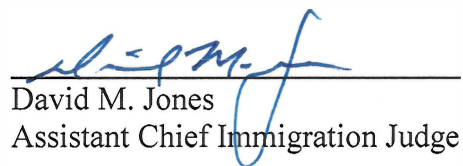 David M. Jones
Assistant Chief Immigration Judge